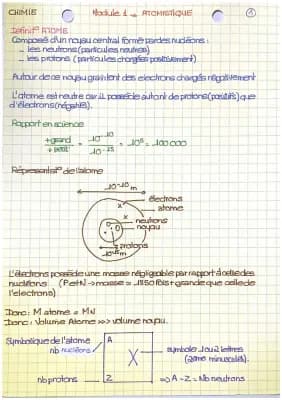 CHIMIE
Module 1 → ATOMISTIQUE
1
Définit° ATOME
Composé d'un noyau central formé par des nucléons :
– les neutrons (particules neutres)
– les protons (particules chargées positivement)
Autour de ce noyau gravitent des électrons chargés négativement
L'atome est neutre car il possède autant de protons (positifs) que
d'électrons (négatifs).
Rapport en science
+ grand / + petit = 10^-10 / 10^-15 = 10^5 = 100 000
Représentat° de l'atome
10^-10 m
électrons
atome
neutrons
noyau
protons
10^-15 m
L'électrons possède une masse négligeable par rapport à celle des
nucléons (P et N → masse = 1850 fois + grande que celle de
l'électrons)
Donc : M atome = MN
Donc : Volume Atome >>> volume noyau.
Symbolique de l'atome
nb nucléons
A
X
symbole 1 ou 2 lettres
(2ème minuscule).
nb protons
Z
⇒ A - Z = Nb neutrons